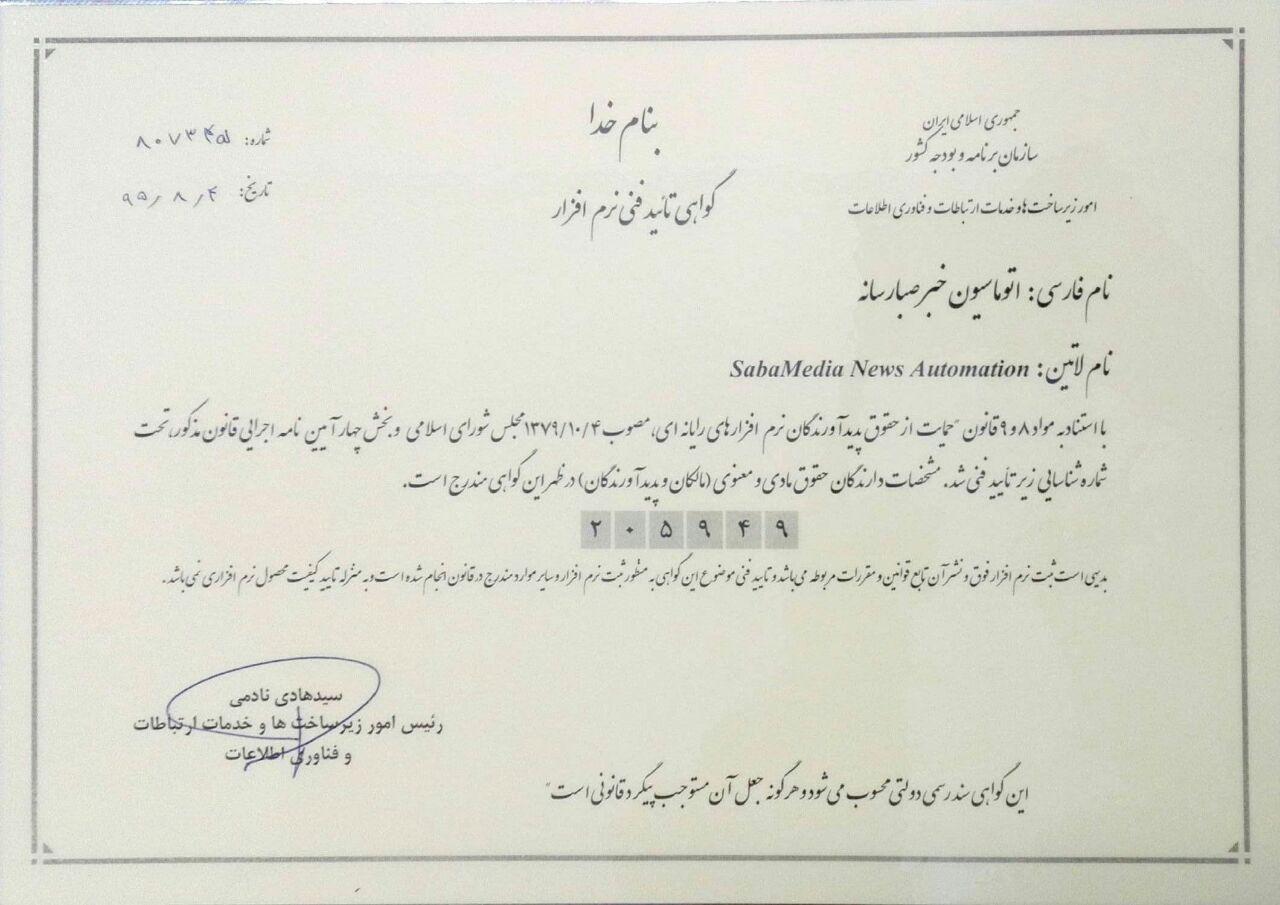 بنام خدا
جمهوری اسلامی ایران
سازمان برنامه و بودجه کشور
امور زیرساخت ها و خدمات ارتباطات و فناوری اطلاعات
شماره:
تاریخ: ۹۵/۸/۴
گواهی تائید فنی نرم افزار
نام فارسی: اتوماسیون خبر صبا رسانه
نام لاتین: SabaMedia News Automation
با استناد به مواد ۸ و ۹ قانون "حمایت از حقوق پدیدآورندگان نرم افزارهای رایانه ای، مصوب ۱۳۷۹/۱۰/۴ مجلس شورای اسلامی و بخش چهار آیین نامه اجرایی قانون مذکور، تحت
شماره شناسایی زیر تأیید فنی شد. مشخصات دارندگان حقوق مادی و معنوی (مالکان و پدیدآورندگان) در ظهر این گواهی مندرج است.
۲۰۵۹۴۹
بدیهی است ثبت نرم افزار فوق و نشر آن تابع قوانین و مقررات مربوطه می باشد و تایید فنی موضوع این گواهی به منظور ثبت نرم افزار و سایر موارد مندرج در قانون انجام شده است و به منزله تایید کیفیت محصول نرم افزاری نمی باشد.
سیدهادی نادمی
رئیس امور زیرساخت ها و خدمات ارتباطات
و فناوری اطلاعات
این گواهی سند رسمی دولتی محسوب می شود و هرگونه جعل آن مستوجب پیگرد قانونی است"